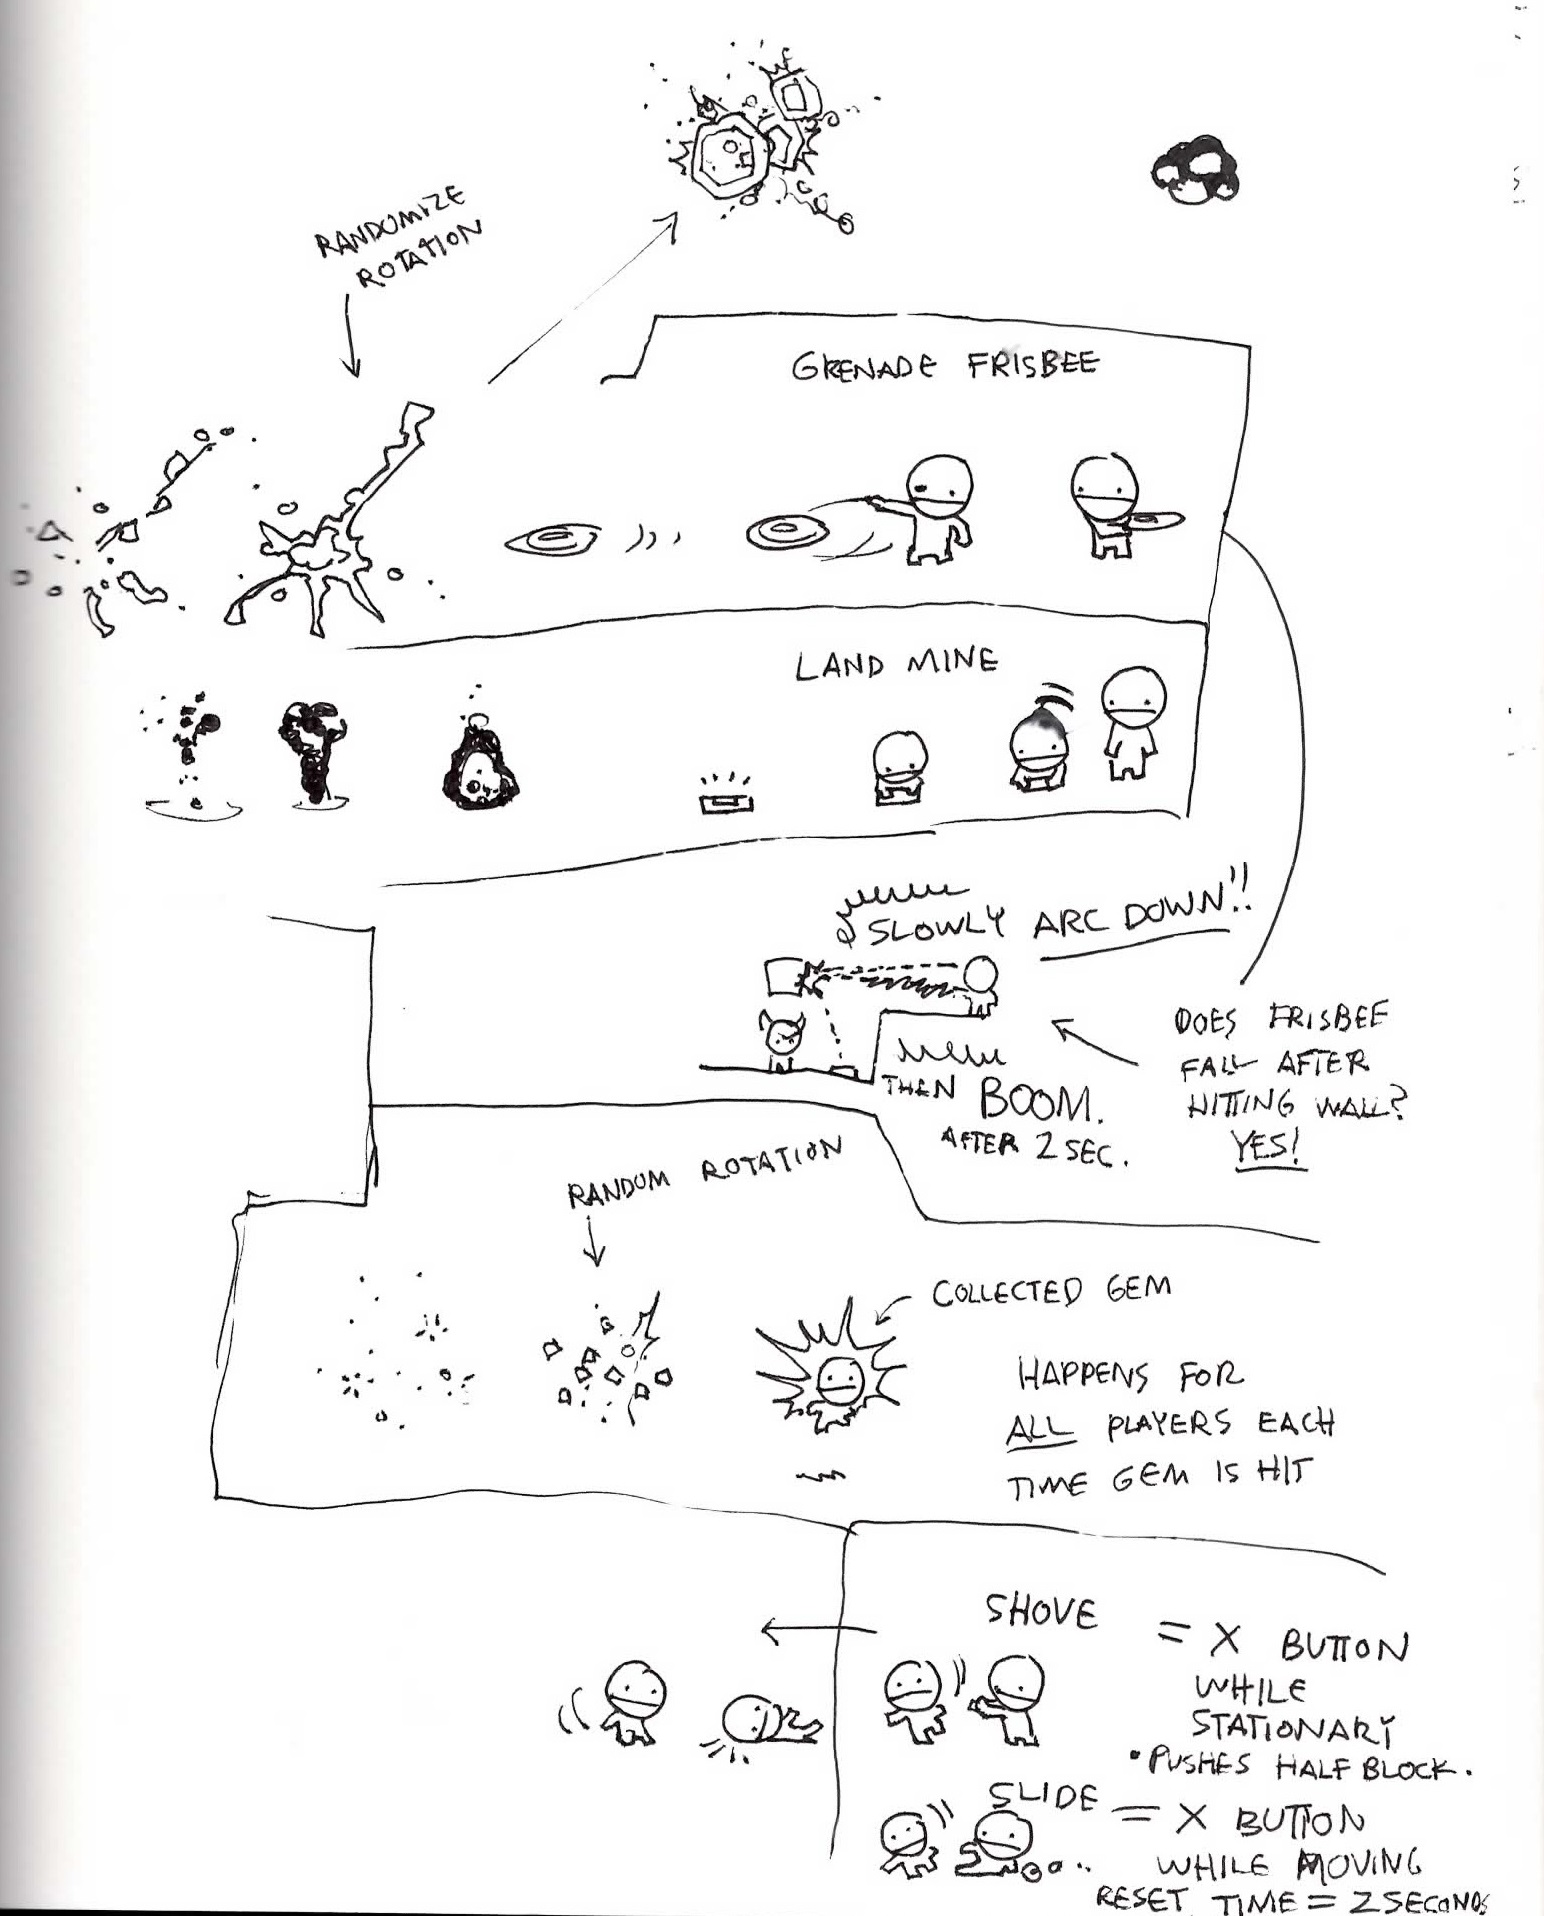 RANDOMIZE
ROTATION
GRENADE FRISBEE
LAND MINE
SLOWLY ARC DOWN!!
DOES FRISBEE
FALL AFTER
HITTING WALL?
YES!
THEN BOOM.
AFTER 2 SEC.
RANDOM ROTATION
COLLECTED GEM
HAPPENS FOR
ALL PLAYERS EACH
TIME GEM IS HIT
SHOVE = X BUTTON
WHILE
STATIONARY
• PUSHES HALF BLOCK.
SLIDE = X BUTTON
WHILE MOVING
RESET TIME = 2 SECONDS